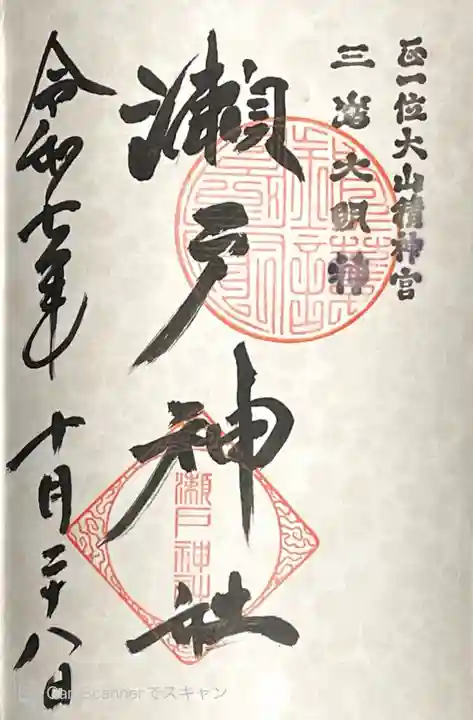 正一位大山積神宮
三嶌大明神
瀬戸神社
瀬戸神社
令和七年 十月二十八日
CamScannerでスキャン